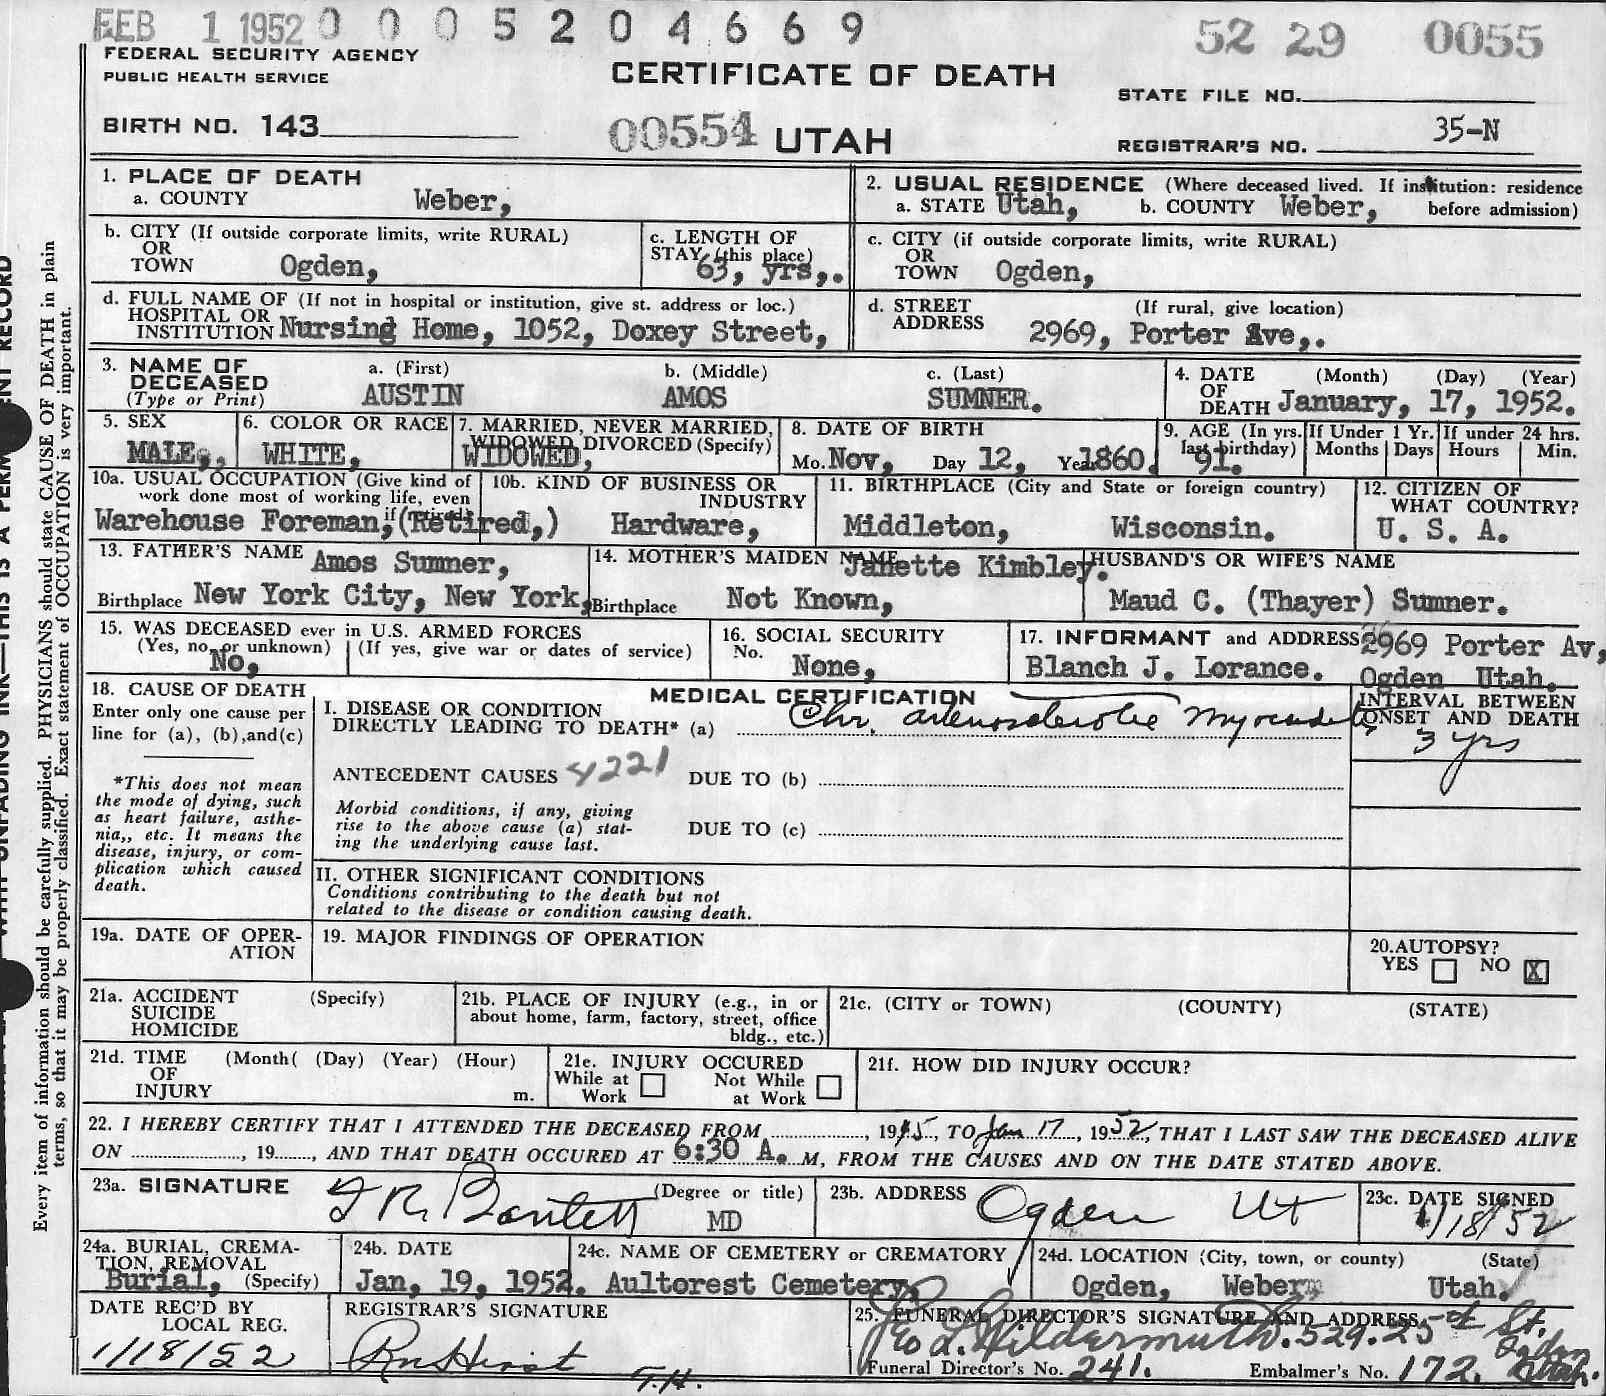 FEB 1 1952 0 0 0 5 2 0 4 6 6 9 52 29 0055
FEDERAL SECURITY AGENCY
PUBLIC HEALTH SERVICE
CERTIFICATE OF DEATH
STATE FILE NO.
BIRTH NO. 143
00554 UTAH
REGISTRAR'S NO. 35-N
1. PLACE OF DEATH
a. COUNTY Weber,
2. USUAL RESIDENCE (Where deceased lived. If institution: residence
a. STATE Utah, b. COUNTY Weber, before admission)
b. CITY (If outside corporate limits, write RURAL)
OR
TOWN Ogden,
c. LENGTH OF
STAY (this place)
63, yrs,.
c. CITY (if outside corporate limits, write RURAL)
OR
TOWN Ogden,
d. FULL NAME OF (If not in hospital or institution, give st. address or loc.)
HOSPITAL OR
INSTITUTION Nursing Home, 1052, Doxey Street,
d. STREET (If rural, give location)
ADDRESS 2969, Porter Ave,.
3. NAME OF
DECEASED
(Type or Print)
a. (First) b. (Middle) c. (Last)
AUSTIN AMOS SUMNER.
4. DATE (Month) (Day) (Year)
OF
DEATH January, 17, 1952.
5. SEX
MALE,
6. COLOR OR RACE
WHITE,
7. MARRIED, NEVER MARRIED,
WIDOWED, DIVORCED (Specify)
WIDOWED,
8. DATE OF BIRTH
Mo. Nov, Day 12, Year 1860.
9. AGE (In yrs.
last birthday)
91.
If Under 1 Yr.
Months Days
If under 24 hrs.
Hours Min.
10a. USUAL OCCUPATION (Give kind of
work done most of working life, even
if retired)
Warehouse Foreman, (Retired,)
10b. KIND OF BUSINESS OR
INDUSTRY
Hardware,
11. BIRTHPLACE (City and State or foreign country)
Middleton, Wisconsin.
12. CITIZEN OF
WHAT COUNTRY?
U. S. A.
13. FATHER'S NAME Amos Sumner,
Birthplace New York City, New York,
14. MOTHER'S MAIDEN NAME Janette Kimbley.
Birthplace Not Known,
HUSBAND'S OR WIFE'S NAME
Maud C. (Thayer) Sumner.
15. WAS DECEASED ever in U.S. ARMED FORCES
(Yes, no, or unknown) (If yes, give war or dates of service)
No,
16. SOCIAL SECURITY
No.
None,
17. INFORMANT and ADDRESS 2969 Porter Av,
Blanch J. Lorance. Ogden Utah.
18. CAUSE OF DEATH
Enter only one cause per
line for (a), (b),and(c)
*This does not mean
the mode of dying, such
as heart failure, asthe-
nia,, etc. It means the
disease, injury, or com-
plication which caused
death.
MEDICAL CERTIFICATION
I. DISEASE OR CONDITION
DIRECTLY LEADING TO DEATH* (a) Chr.
INTERVAL BETWEEN
ONSET AND DEATH
3 yrs
ANTECEDENT CAUSES 4221 DUE TO (b)
Morbid conditions, if any, giving
rise to the above cause (a) stat-
ing the underlying cause last.
DUE TO (c)
II. OTHER SIGNIFICANT CONDITIONS
Conditions contributing to the death but not
related to the disease or condition causing death.
19a. DATE OF OPER-
ATION
19. MAJOR FINDINGS OF OPERATION
20.AUTOPSY?
YES NO X
21a. ACCIDENT (Specify)
SUICIDE
HOMICIDE
21b. PLACE OF INJURY (e.g., in or
about home, farm, factory, street, office
bldg., etc.)
21c. (CITY or TOWN) (COUNTY) (STATE)
21d. TIME (Month( (Day) (Year) (Hour)
OF
INJURY m.
21e. INJURY OCCURED
While at Work Not While at Work
21f. HOW DID INJURY OCCUR?
22. I HEREBY CERTIFY THAT I ATTENDED THE DECEASED FROM , 1945, TO Jan 17, 1952, THAT I LAST SAW THE DECEASED ALIVE
ON , 19 , AND THAT DEATH OCCURED AT 6:30 A. M, FROM THE CAUSES AND ON THE DATE STATED ABOVE.
23a. SIGNATURE (Degree or title)
MD
23b. ADDRESS Ogden Ut
23c. DATE SIGNED
1/18/52
24a. BURIAL, CREMA-
TION, REMOVAL
Burial, (Specify)
24b. DATE
Jan, 19, 1952.
24c. NAME OF CEMETERY or CREMATORY
Aultorest Cemetery,
24d. LOCATION (City, town, or county) (State)
Ogden, Weber, Utah.
DATE REC'D BY
LOCAL REG.
1/18/52
REGISTRAR'S SIGNATURE
T.H.
25. FUNERAL DIRECTOR'S SIGNATURE AND ADDRESS
Geo L. Wildermuth. 529. 25 St.
Ogden
Utah.
Funeral Director's No. 241. Embalmer's No. 172.
Every item of information should be carefully supplied. PHYSICIANS should state CAUSE OF DEATH in plain
terms, so that it may be properly classified. Exact statement of OCCUPATION is very important.